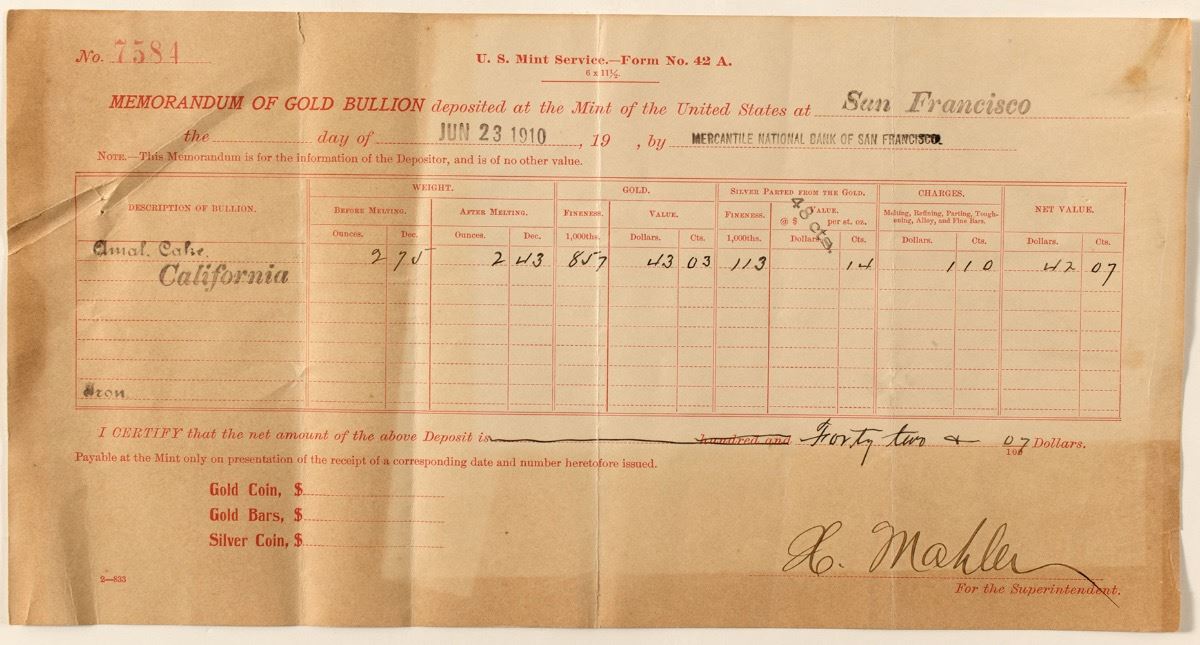 No. 7584
U. S. Mint Service.—Form No. 42 A.
6 x 11½.
MEMORANDUM OF GOLD BULLION deposited at the Mint of the United States at San Francisco
the day of JUN 23 1910, 19 , by MERCANTILE NATIONAL BANK OF SAN FRANCISCO.
NOTE.—This Memorandum is for the information of the Depositor, and is of no other value.
DESCRIPTION OF BULLION. WEIGHT. GOLD. SILVER PARTED FROM THE GOLD. CHARGES. NET VALUE.
BEFORE MELTING. AFTER MELTING. FINENESS. VALUE. FINENESS. VALUE. Melting, Refining, Parting, Tough-
@ $ 48 cts. per st. oz. ening, Alloy, and Fine Bars.
Ounces. Dec. Ounces. Dec. 1,000ths. Dollars. Cts. 1,000ths. Dollars. Cts. Dollars. Cts. Dollars. Cts.
Amal. Cake. 2 75 2 43 857 43 03 113 14 1 10 42 07
California
Iron
I CERTIFY that the net amount of the above Deposit is hundred and Forty two & 07/100 Dollars.
Payable at the Mint only on presentation of the receipt of a corresponding date and number heretofore issued.
Gold Coin, $
Gold Bars, $
Silver Coin, $
H. Mahler
2—833
For the Superintendent.